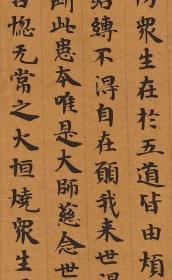 衆生在於五道皆由煩
縛不得自在願我来世得
斷此患本唯是大師慈念世
惣无常之火恒燒衆生